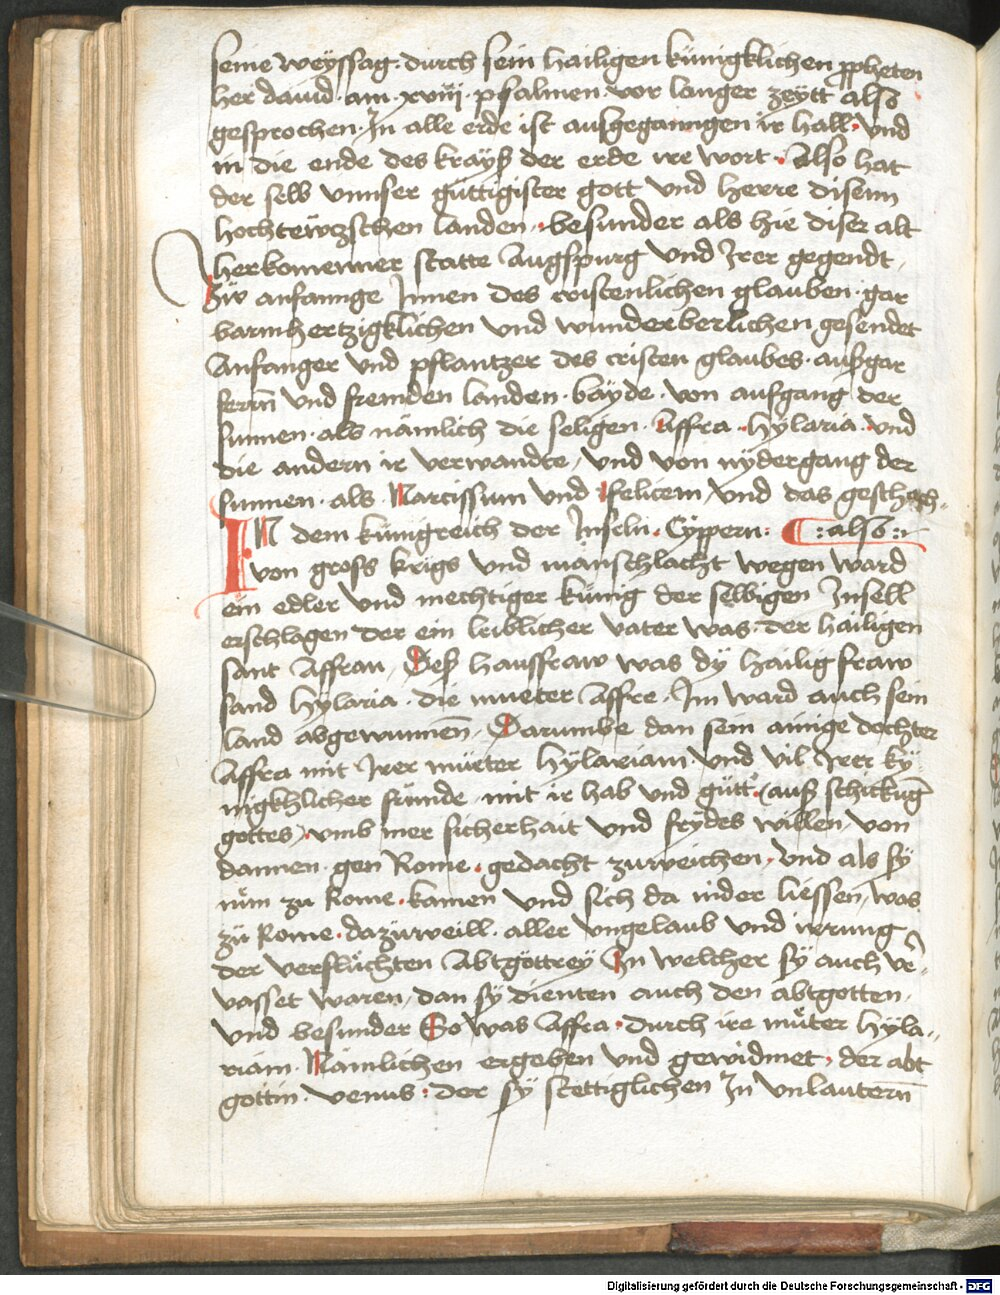 seine weyssag · durch sein hailigen künigklichen ppheten
her dauid · am · xviij · psalmen vor langer zeytt also
gesprochen · In alle erde ist auſzgeganngen ir hall · und
in die ende des krayß der erde ire wort · Also hat
der selb vnnser güttigister gott vnd herre disenn
hochtewtzschen landen · besunder als hie diser alt
herkomenner statte Augspurg vnd Irer gegendt,
Zů anfannge Innen des cristenlichen glauben · gar
barmhertzigklichen vnd wunderberlichen gesendet
Anfanger vnd pflantzer des cristen glaubes · auß gar
ferrn vnd fremden landen · bayde · von aufgang der
sunnen · als nämlich die seligen · Affra · Hylaria · vnd
die andern ir verwandte, vnd von nydergang der
sunnen · als Narcissum vnd Felicem, vnd das geschach
IN dem künigreich der Inseln · Cyppern : :also:
von gross krigs vnd manschlacht wegen ward
ein edler vnd mechtiger künig der selbigen Insell
erschlagen der ein leiblicher vater was · der häiligen
sant Affran, Deß haussfraw was dÿ hailig fraw
sand Hylaria · die mueter Affre · Im ward auch sein
land abgewunnen, Darumbe dan sein ainige dochter
Affra mit Irer müter Hÿlariam · vnd vil Irer kü
nigkhlicher fründe · mit ir hab vnd gütt · (auß schickung
gottes) vmb mer sicherhait vnd frydes willen, von
dannen · gen Rome · gedacht zuweichen · vnd als sÿ
nům zu Rome · kamen vnd sich da nider liessen, was
zů Rome · dazůweill · aller vngelaub vnd irrung
der verflůchten Abtgöttrey In welcher sy auch ver
vasset waren, dan sÿ dienten auch den abtgotten,
vnd besunder So was Affra · durch ire můter Hyla
riam · Nämlichen ergeben vnd gewidmet · der abt
göttin · venus : der sÿ stettiglichen In vnlautern
Digitalisierung gefördert durch die Deutsche Forschungsgemeinschaft - DFG